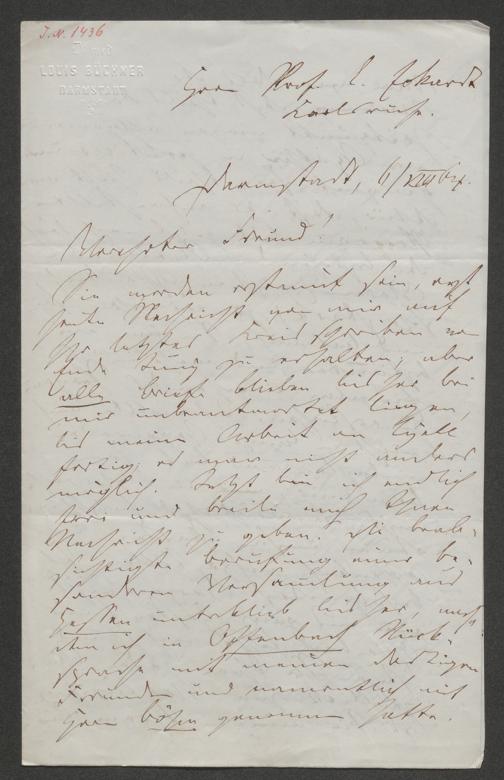 J.N. 1436
Dr. med.
LOUIS BÜCHNER
DARMSTADT
Herrn Prof. L. Eckardt
Karlsruhe.
Darmstadt, 6/VIII 64.
Verehrter Freund!
Sie werden erstaunt sein, erst
heute Nachricht von mir auf
Ihr letztes Kreisschreiben von
Ende Juny zu erhalten; aber
alle Briefe blieben bisher bei
mir unbeantwortet liegen,
bis meine Arbeit an Lyell
fertig; es war nicht anders
möglich. Jetzt bin ich endlich
frei und beeile mich Ihnen
Nachricht zu geben. Die beab-
sichtigte Berufung einer be-
sonderen Versammlung aus
Hessen unterblieb bisher, nach-
dem ich in Offenbach Rück-
sprache mit meinen dortigen
Freunden und namentlich mit
Herrn Böhm genommen hatte.